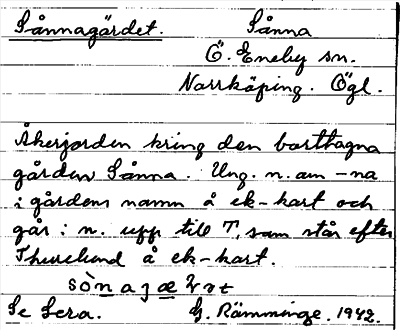 Sånnagärdet. Sånna
Ö. Eneby sn.
Norrköping. Ögl.
Åkerjorden kring den borttagna
gården Sånna. Ung. n. om -na
i gårdens namn å ek-kart och
går i n. upp till T, som står efter
Thurelund å ek-kart.
Se Sera. G. Rämminge. 1942.